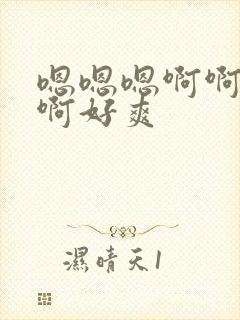 嗯嗯嗯啊啊
啊好爽
濕晴天1